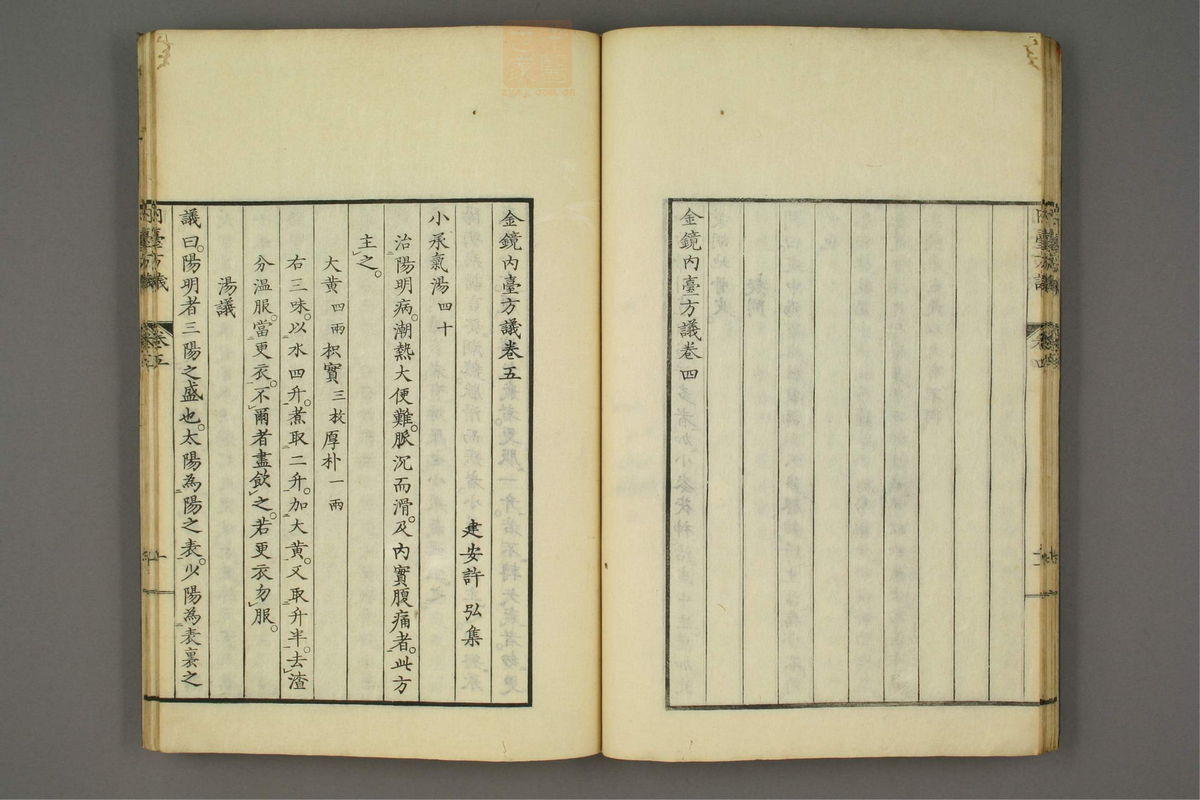 金鏡內臺方議卷四
金鏡內臺方議卷五
建安許弘集
小承氣湯四十
治陽明病。潮熱大便難。脈沉而滑。及內實腹痛者。此方
主之。
大黃四兩枳實三枚厚朴一兩
右三味。以水四升。煮取二升。加大黃。又取升半。去渣
分溫服。當更衣。不爾者盡飲之。若更衣勿服。
湯議
議曰。陽明者三陽之盛也。太陽為陽之表。少陽為表裏之